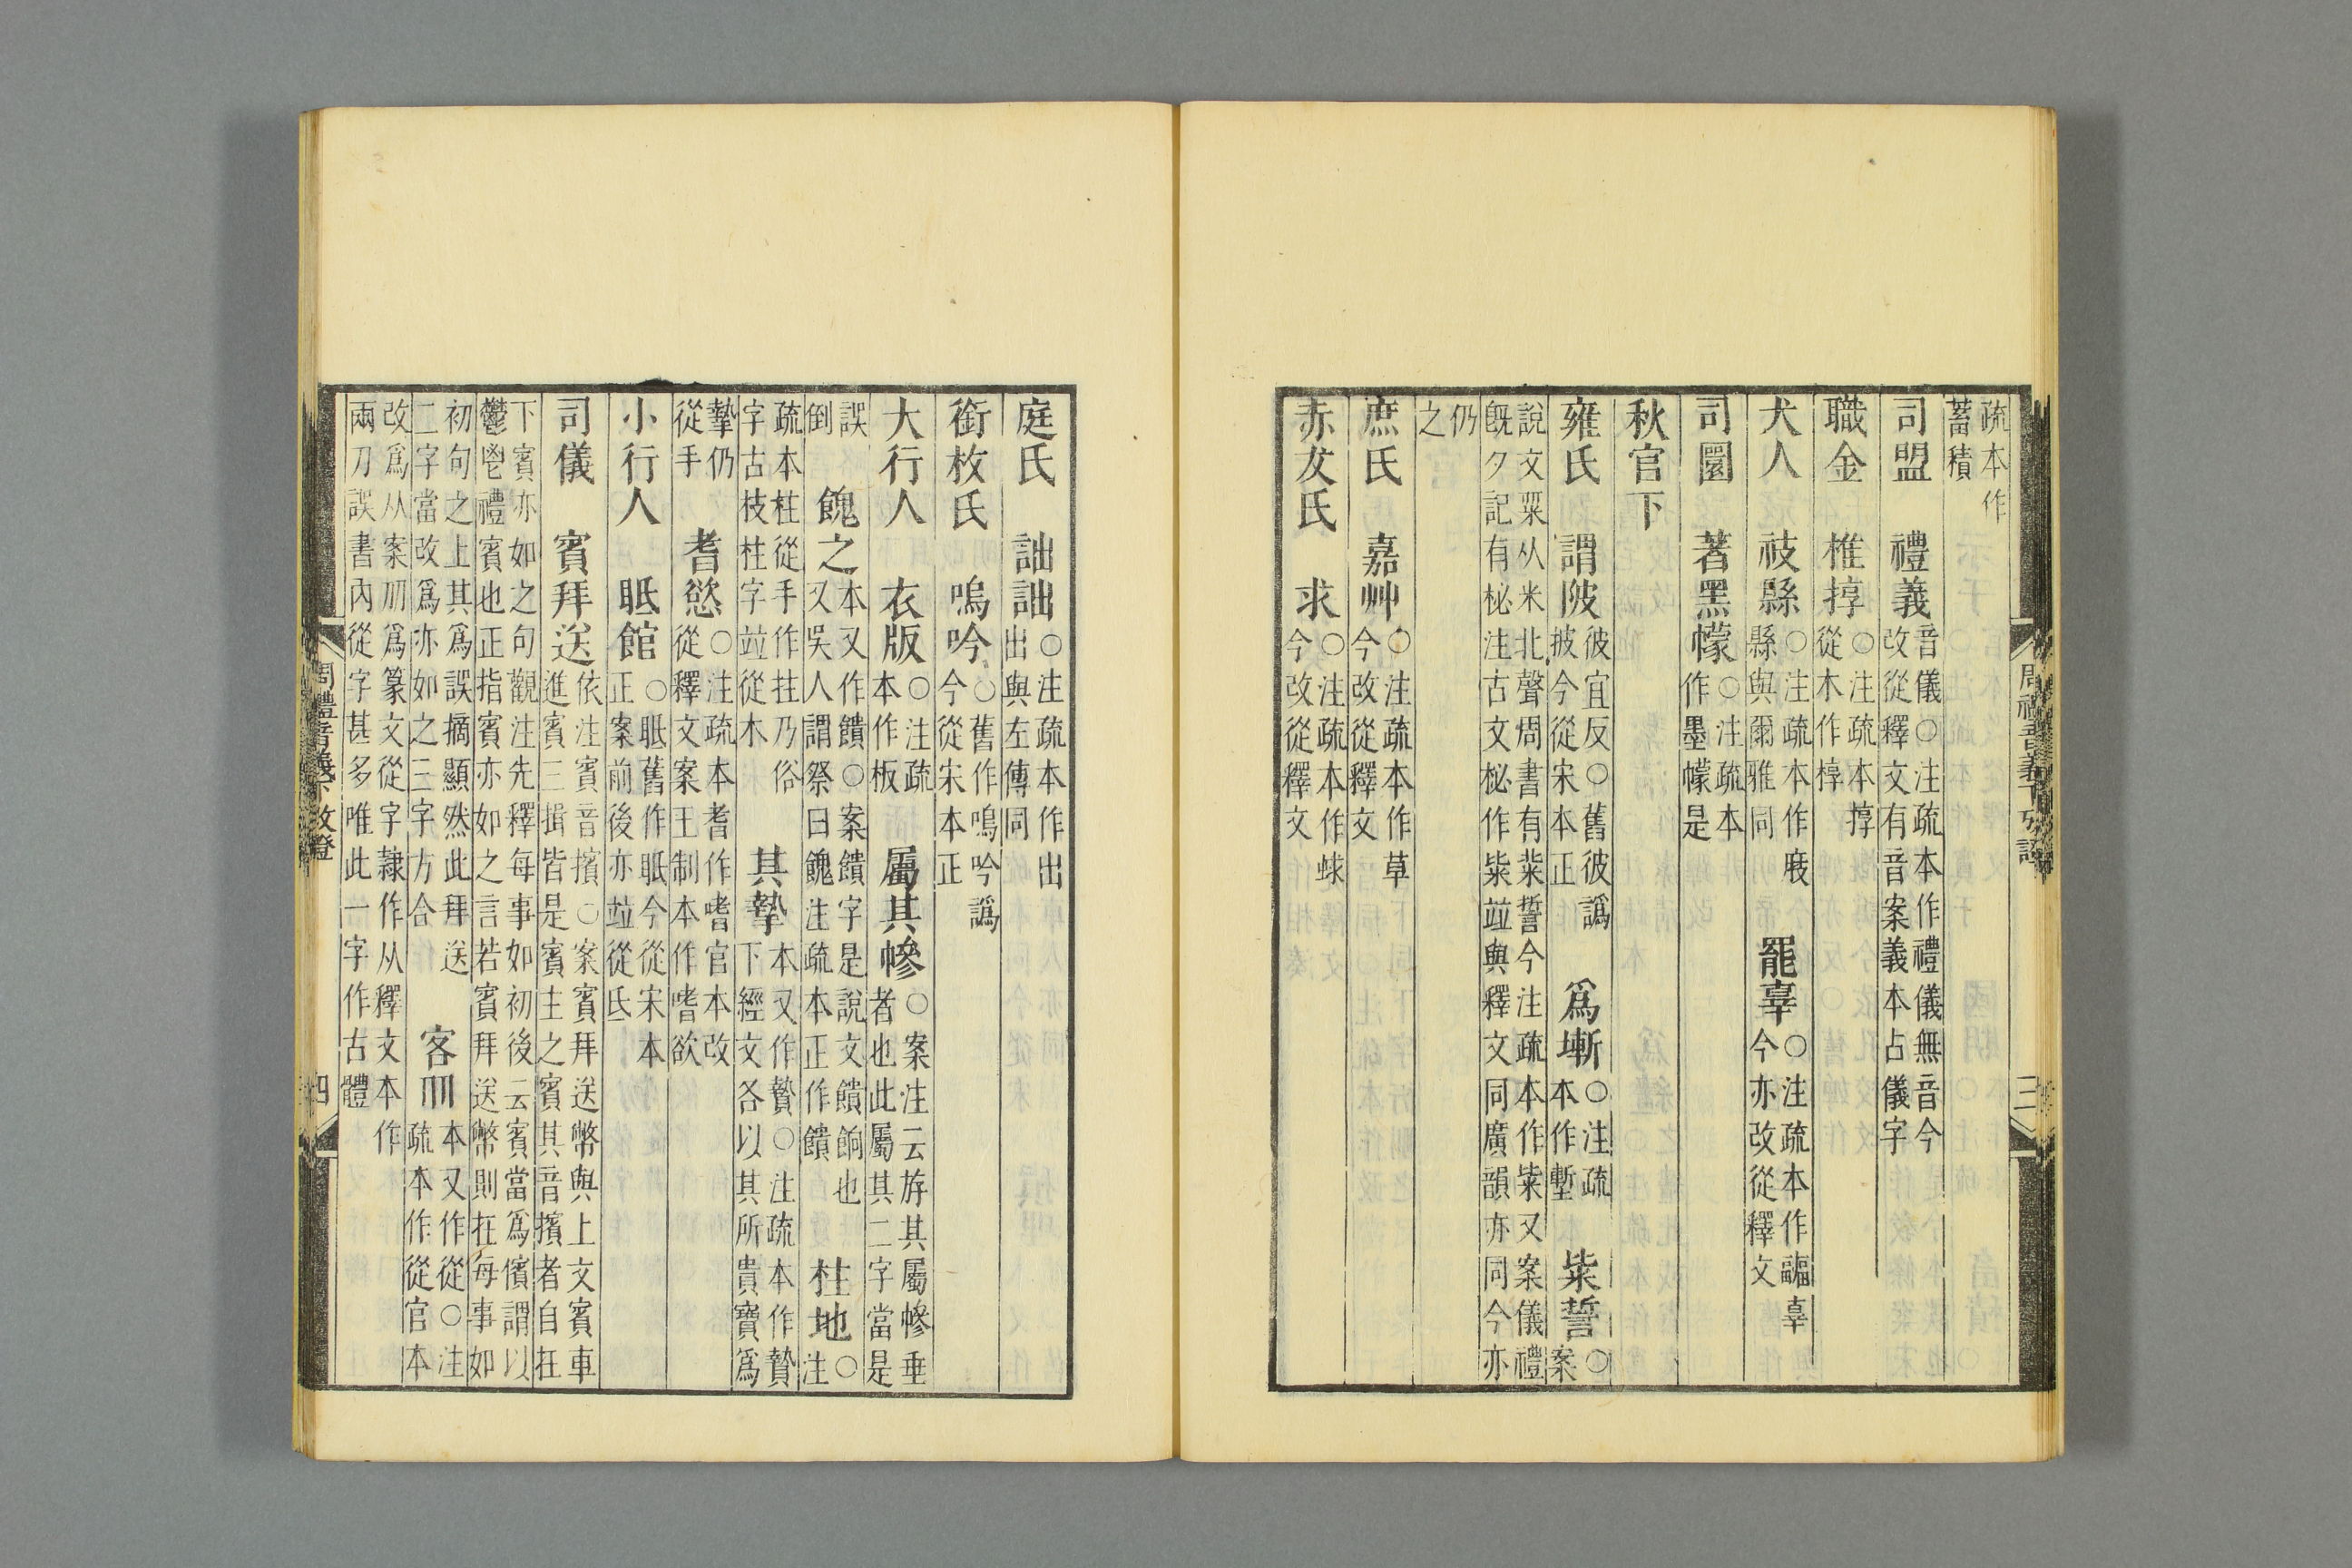 疏本作
蓄積
司盟　禮義音儀○注疏本作禮儀無音今
改從釋文有音案義本占儀字
職金　椎㨃○注疏本㨃
從木作椁
犬人　祓縣○注疏本作庪
縣與爾雅同　罷辜○注疏本作疈辜
今亦改從釋文
司圜　著黑幪○注疏本
作墨幪是
秋官下
雍氏　謂陂彼宜反○舊彼譌
披今從宋本正　爲塹○注疏
本作塹　粊誓○
案
說文粊从米北聲周書有粊誓今注疏本作柴又案儀禮
旣夕記有柲注古文柲作柴竝與釋文同廣韻亦同今亦
仍
之
庶氏　嘉艸○注疏本作草
今改從釋文
赤犮氏　求○注疏本作蛷
今改從釋文
周禮音義下攷證
三
庭氏　詘詘○注疏本作出
出與左傳同
銜枚氏　嗚吟○舊作鳴吟譌
今從宋本正
大行人　衣版○注疏
本作板　屬其幓○案注云斿其屬幓垂
者也此屬其二字當是
誤
倒　餽之本又作饋○案饋字是說文饋餉也
又吳人謂祭曰餽注疏本正作饋　柱地○
注
疏本柱從手作拄乃俗
字古枝柱字竝從木　其摯本又作贄○注疏本作贄
下經文各以其所貴寶爲
摯仍
從手　耆慾○注疏本耆作嗜官本改
從釋文案王制本作嗜欲
小行人　眡館○眡舊作眂今從宋本
正案前後亦竝從氐
司儀　賓拜送依注賓音擯○案賓拜送幣與上文賓車
進賓三揖皆是賓主之賓其音擯者自在
下賓亦如之句觀注先釋每事如初後云賓當爲儐謂以
鬱鬯禮賓也正指賓亦如之言若賓拜送幣則在每事如
初句之上其爲誤摘顯然此拜送
二字當改爲亦如之三字方合　客㓜本又作從○注
疏本作從官本
改爲从案㓜爲篆文從字隷作从釋文本作
兩刀誤書內從字甚多唯此一字作古體
周禮音義下攷證
四